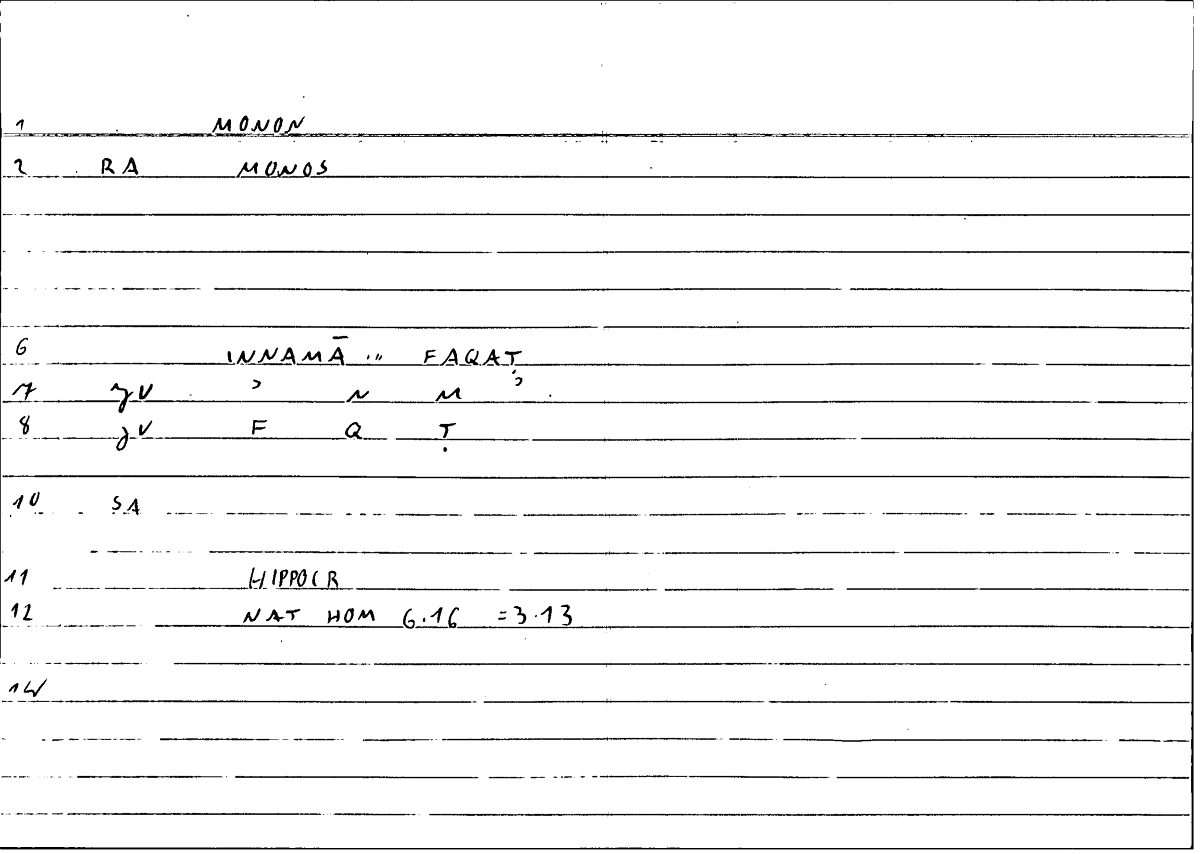 1 MONON
2 RA MONOS
6 INNAMĀ ... FAQAṬ
7 JV ʾ N M ʾ
8 JV F Q Ṭ
10 SA
11 HIPPOCR
12 NAT HOM 6.16 =3.13
14